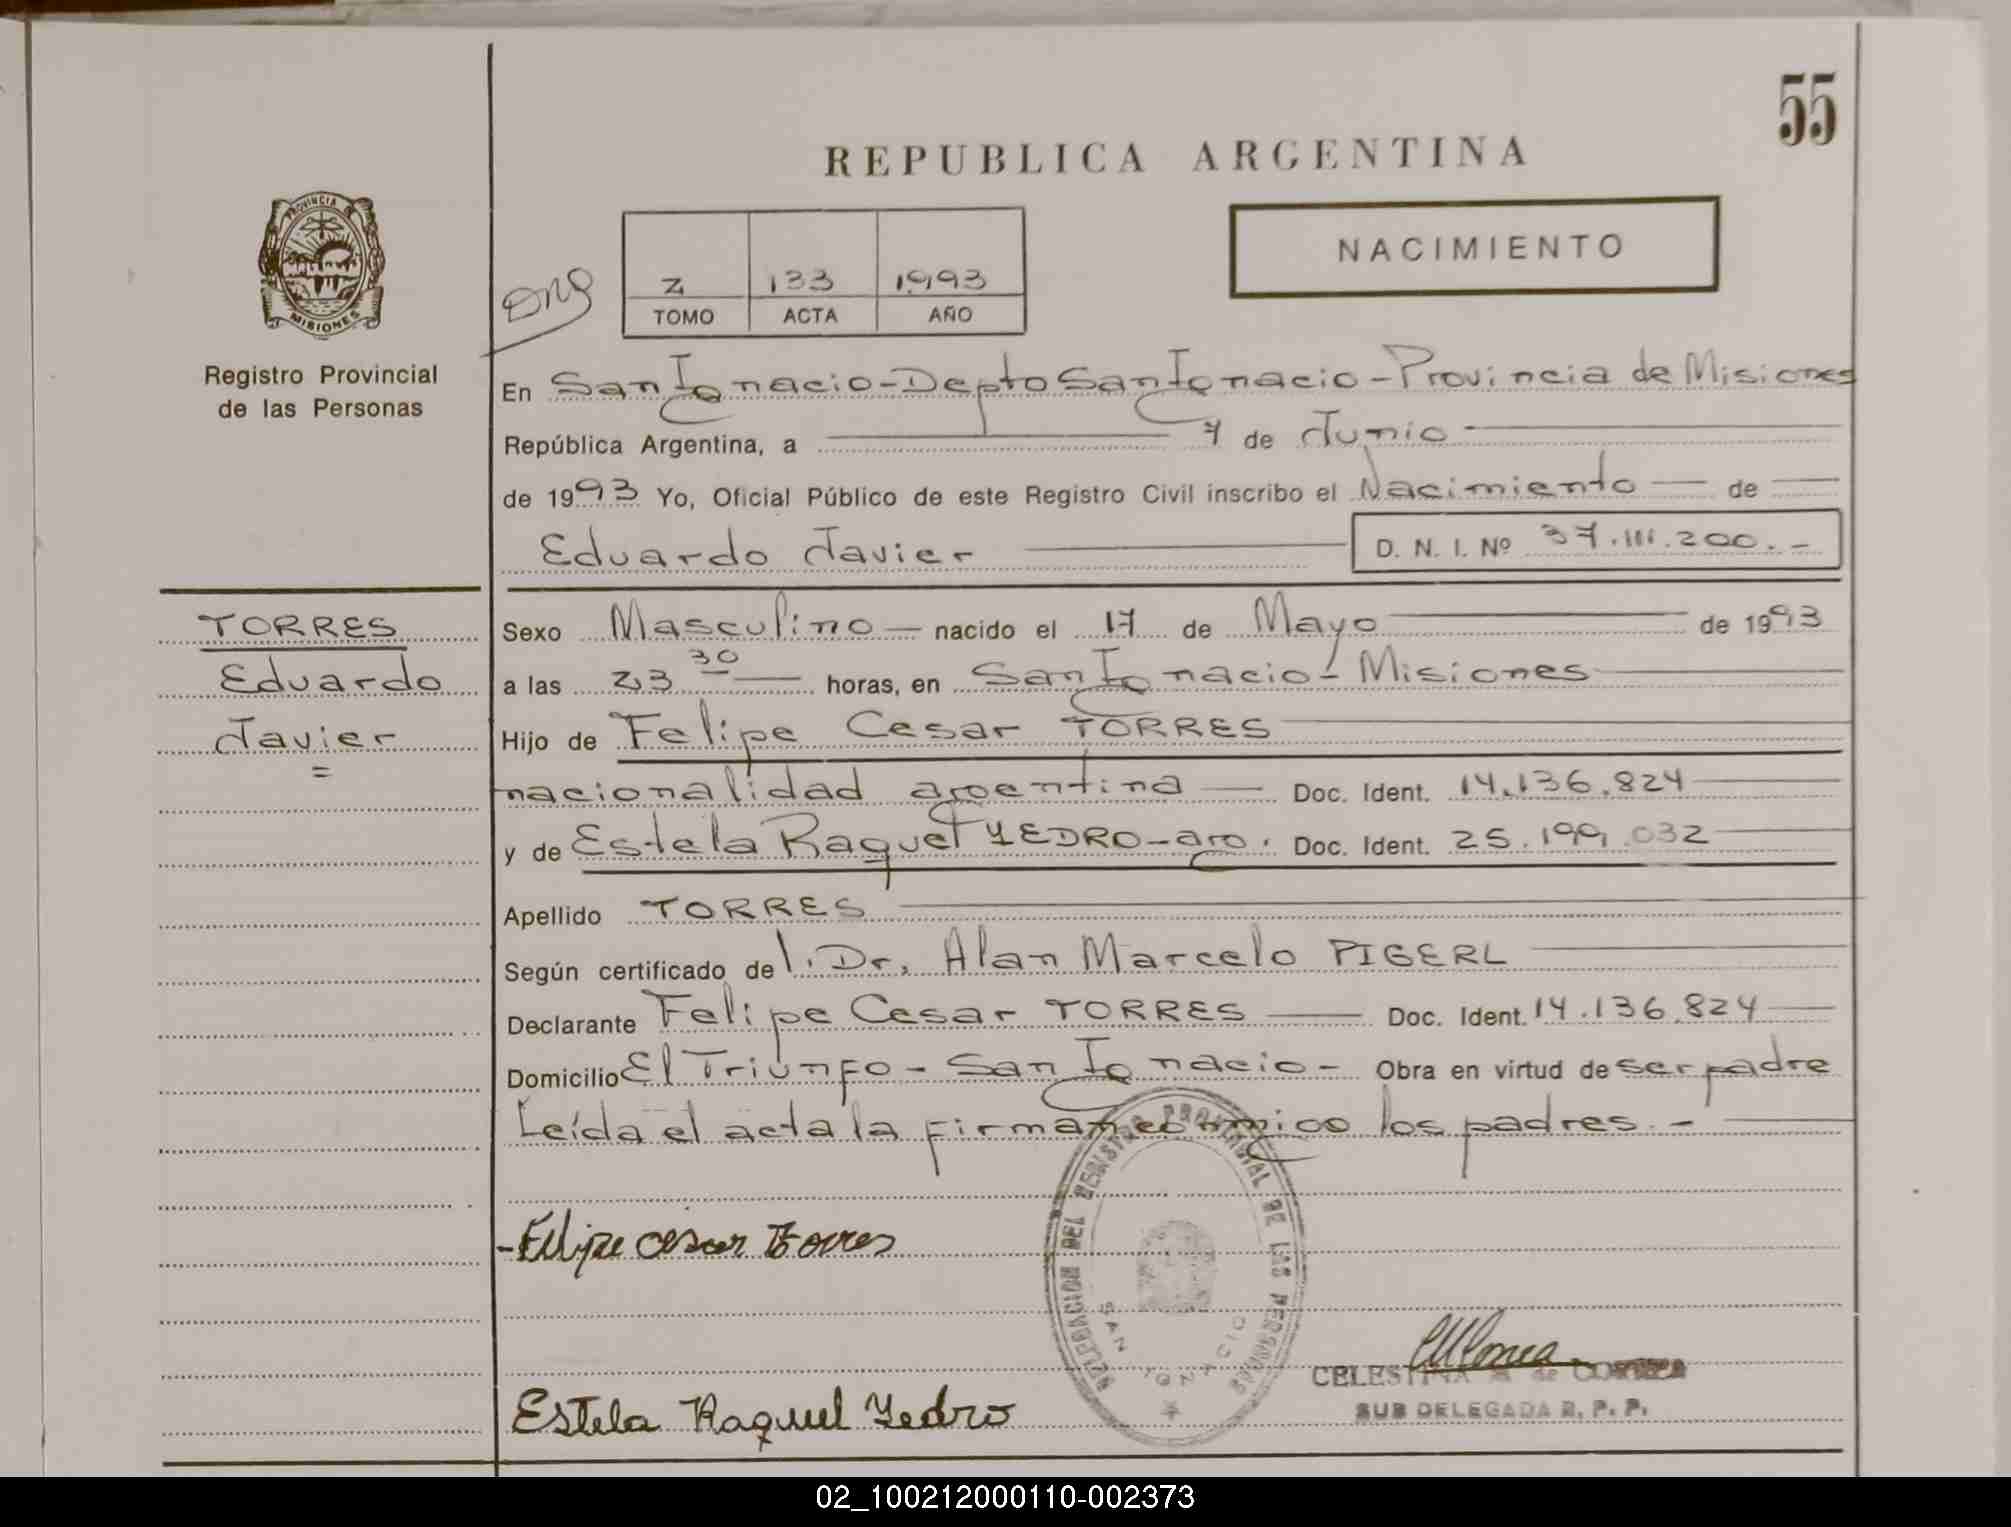 55
REPUBLICA ARGENTINA
PROVINCIA
MISIONES
Registro Provincial
de las Personas
NACIMIENTO
2 133 1993
TOMO ACTA AÑO
En San Ignacio - Depto San Ignacio - Provincia de Misiones
República Argentina, a 7 de Junio
de 1993 Yo, Oficial Público de este Registro Civil inscribo el Nacimiento de
Eduardo Javier D. N. I. Nº 37.111.200.-
TORRES
Eduardo
Javier
=
Sexo Masculino nacido el 17 de Mayo de 1993
a las 23 30 horas, en San Ignacio - Misiones
Hijo de Felipe Cesar TORRES
nacionalidad argentina Doc. Ident. 14.136.824
y de Estela Raquel YEDRO - arg. Doc. Ident. 25.199.032
Apellido TORRES
Según certificado del. Dr. Alan Marcelo PIGERL
Declarante Felipe Cesar TORRES Doc. Ident. 14.136.824
Domicilio El Triunfo - San Ignacio - Obra en virtud de ser padre
Leída el acta la firman conmigo los padres.-
- Felipe cesar torres
DELEGACION DEL REGISTRO PROVINCIAL DE LAS PERSONAS
SAN IGNACIO
CELESTINA de
SUB DELEGADA R. P. P.
Estela Raquel Yedro
02_100212000110-002373